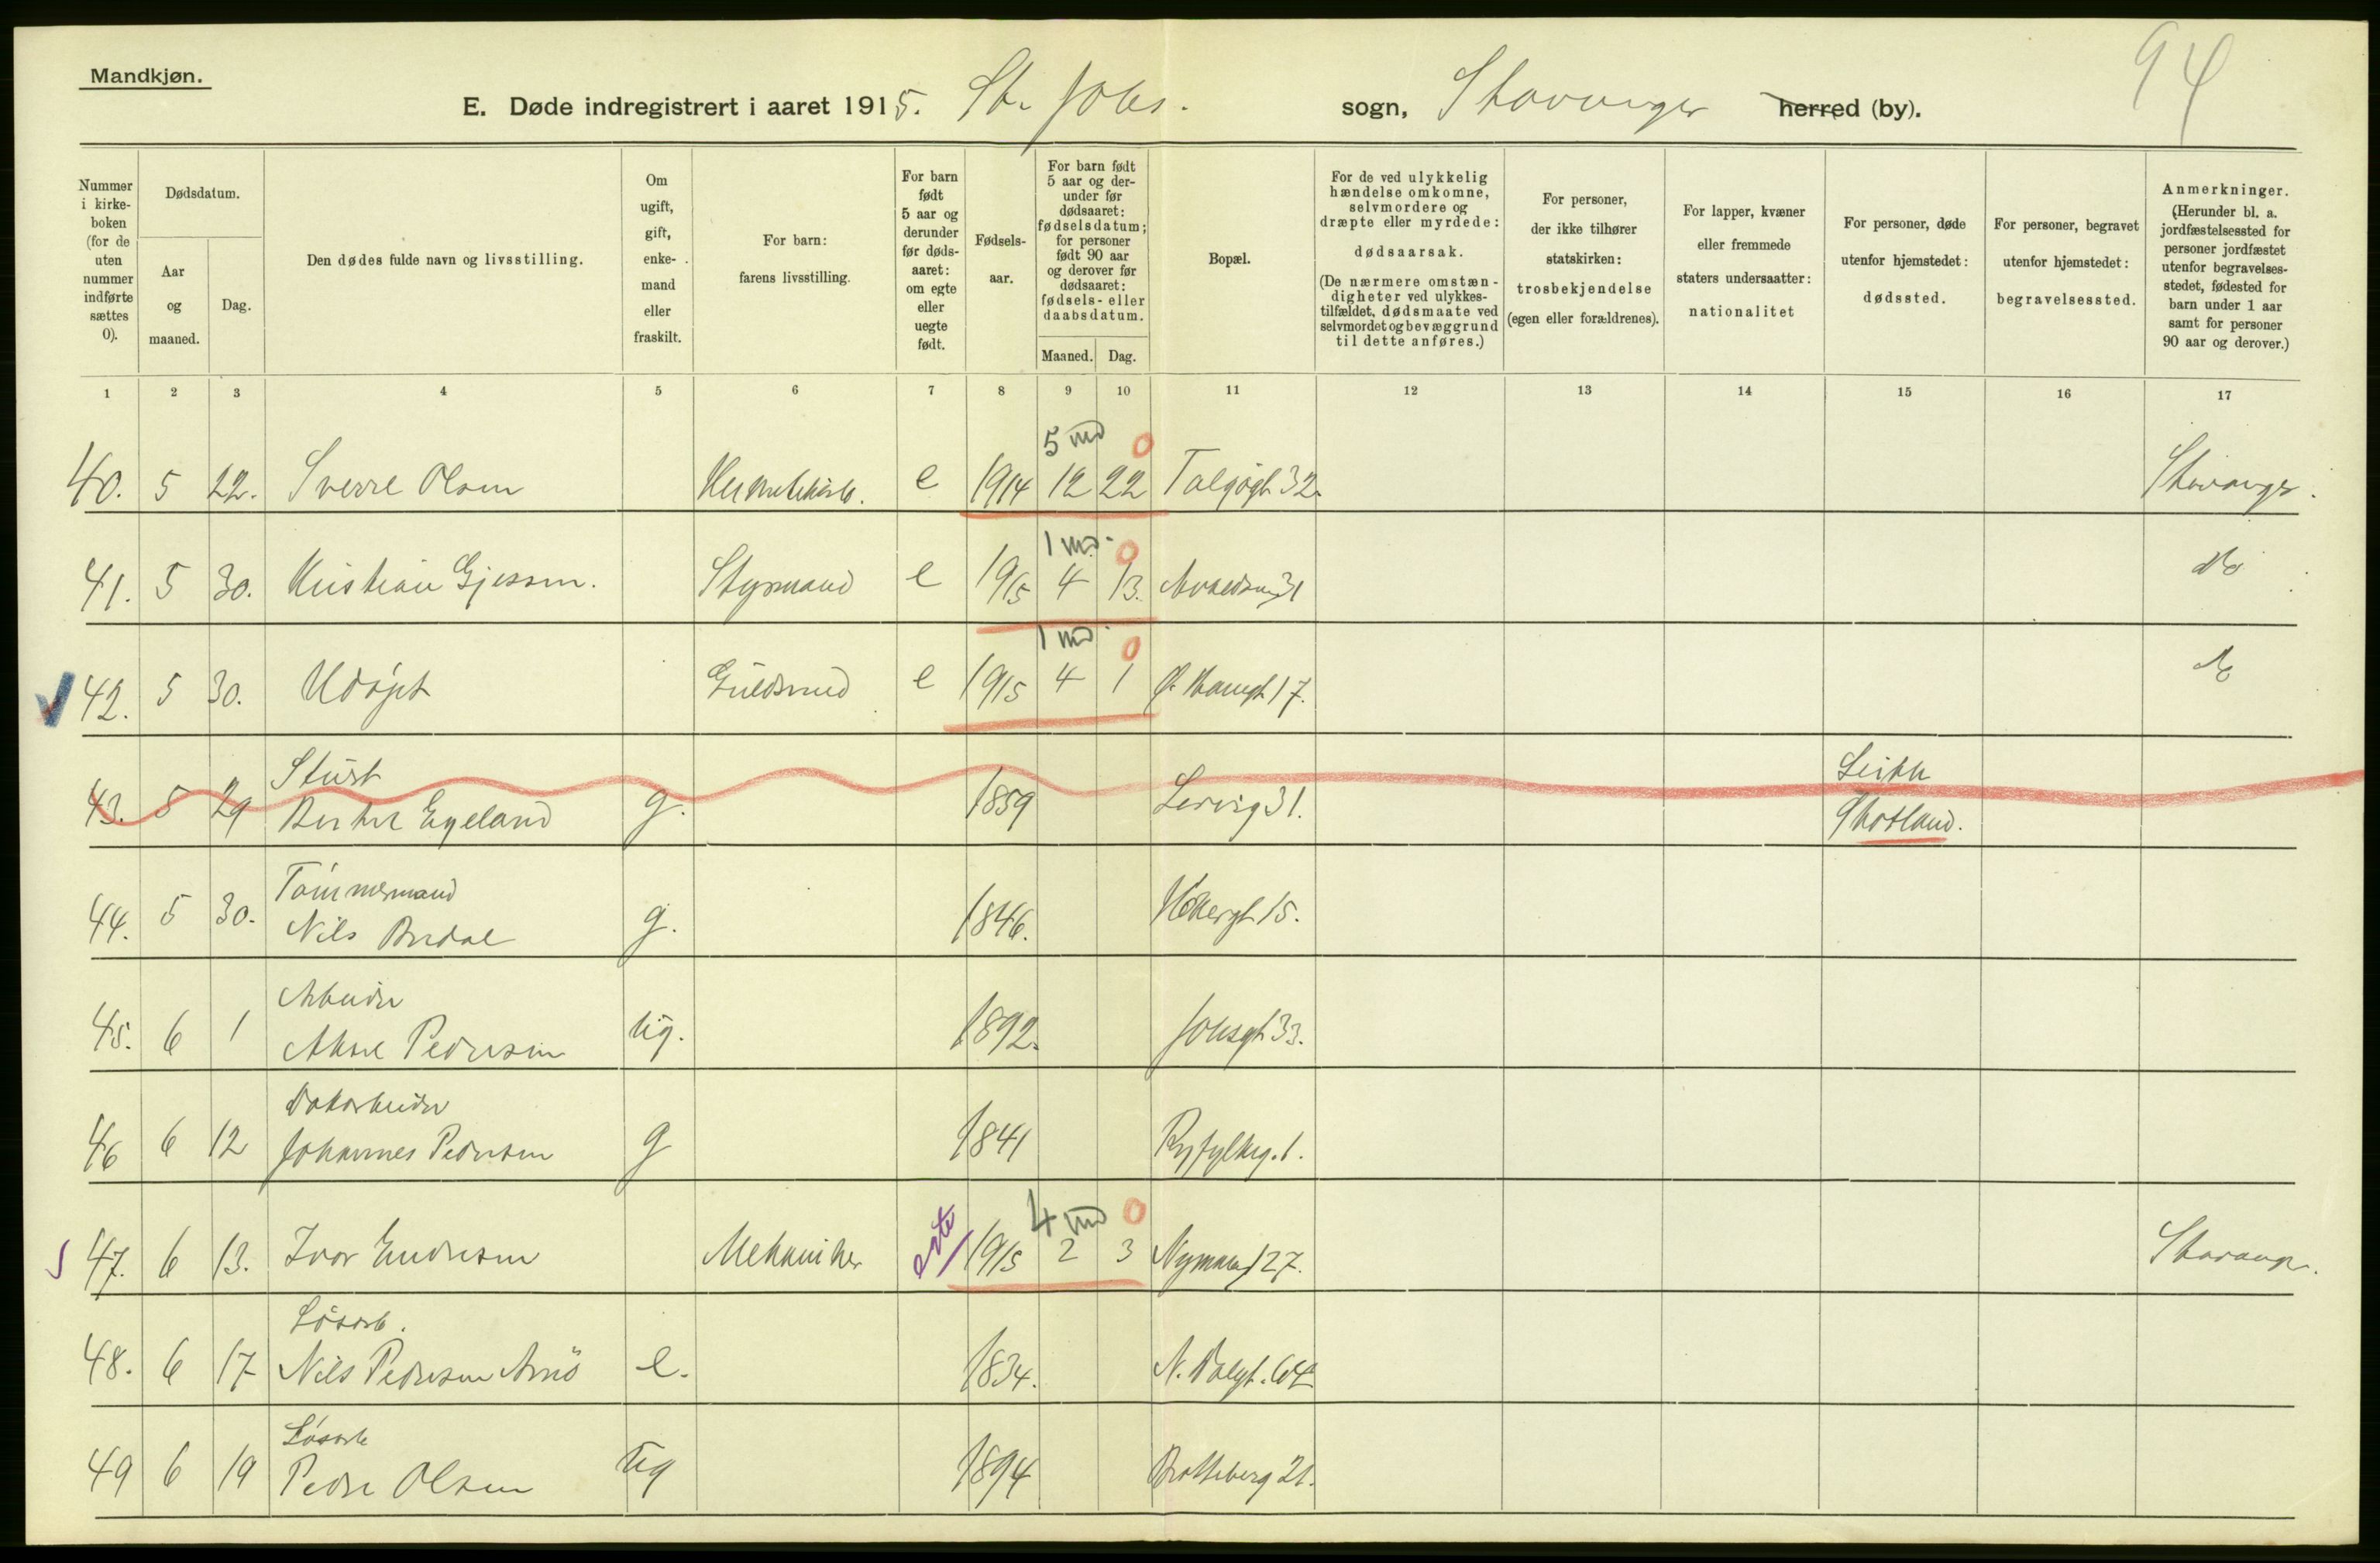 94
Mandkjøn.
E. Døde indregistrert i aaret 1915. St. Johs. sogn, Stavanger herred (by).
Nummer i kirke-boken (for de uten nummer indførte sættes 0).
Dødsdatum.
Aar og maaned.
Dag.
Den dødes fulde navn og livsstilling.
Om ugift, gift, enke-mand eller fraskilt.
For barn: farens livsstilling.
For barn født 5 aar og derunder før døds-aaret: om egte eller uegte født.
Fødsels-aar.
For barn født 5 aar og der-under før dødsaaret: fødselsdatum; for personer født 90 aar og derover før dødsaaret: fødsels- eller daabsdatum.
Maaned. Dag.
Bopæl.
For de ved ulykkelig hændelse omkomne, selvmordere og dræpte eller myrdede: dødsaarsak. (De nærmere omstæn-digheter ved ulykkes-tilfældet, dødsmaate ved selvmordet og bevæggrund til dette anføres.)
For personer, der ikke tilhører statskirken: trosbekjendelse (egen eller forældrenes).
For lapper, kvæner eller fremmede staters undersaatter: nationalitet
For personer, døde utenfor hjemstedet: dødssted.
For personer, begravet utenfor hjemstedet: begravelsessted.
Anmerkninger. (Herunder bl. a. jordfæstelsessted for personer jordfæstet utenfor begravelses-stedet, fødested for barn under 1 aar samt for personer 90 aar og derover.)
1 2 3 4 5 6 7 8 9 10 11 12 13 14 15 16 17
5 md 0
40. 5 22. Sverre Olsen e 1914 12 22 Talgøgt 32. Stavanger.
1 md. 0
41. 5 30. Kristian Gjessen. Styrmand e 1915 4 13. 31 do
1 md. 0
42. 5 30. Udøpt Guldsmed e 1915 4 1 17. do
Stuert Leith
43. 5 29 Berent Egeland g. 1859 Lervig 31. Skotland.
Tømmermand
44. 5 30. Nils Bredal g. 1846. 15.
Arbeider
45. 6 1 Pedersen ug. 1892. Johsgt 33.
46 6 12 Johannes Pedersen g 1841 Ryfylkeg. 1.
4 md 0
47. 6 13. Ivar Endresen Mekaniker ekte 1915 2 3 27. Stavanger.
Løsarb.
48. 6 17 Nils Pedersen e. 1834. N. Dalgt. 64
Løsarb
49 6 19 Peder Olsen ug 1894 21.